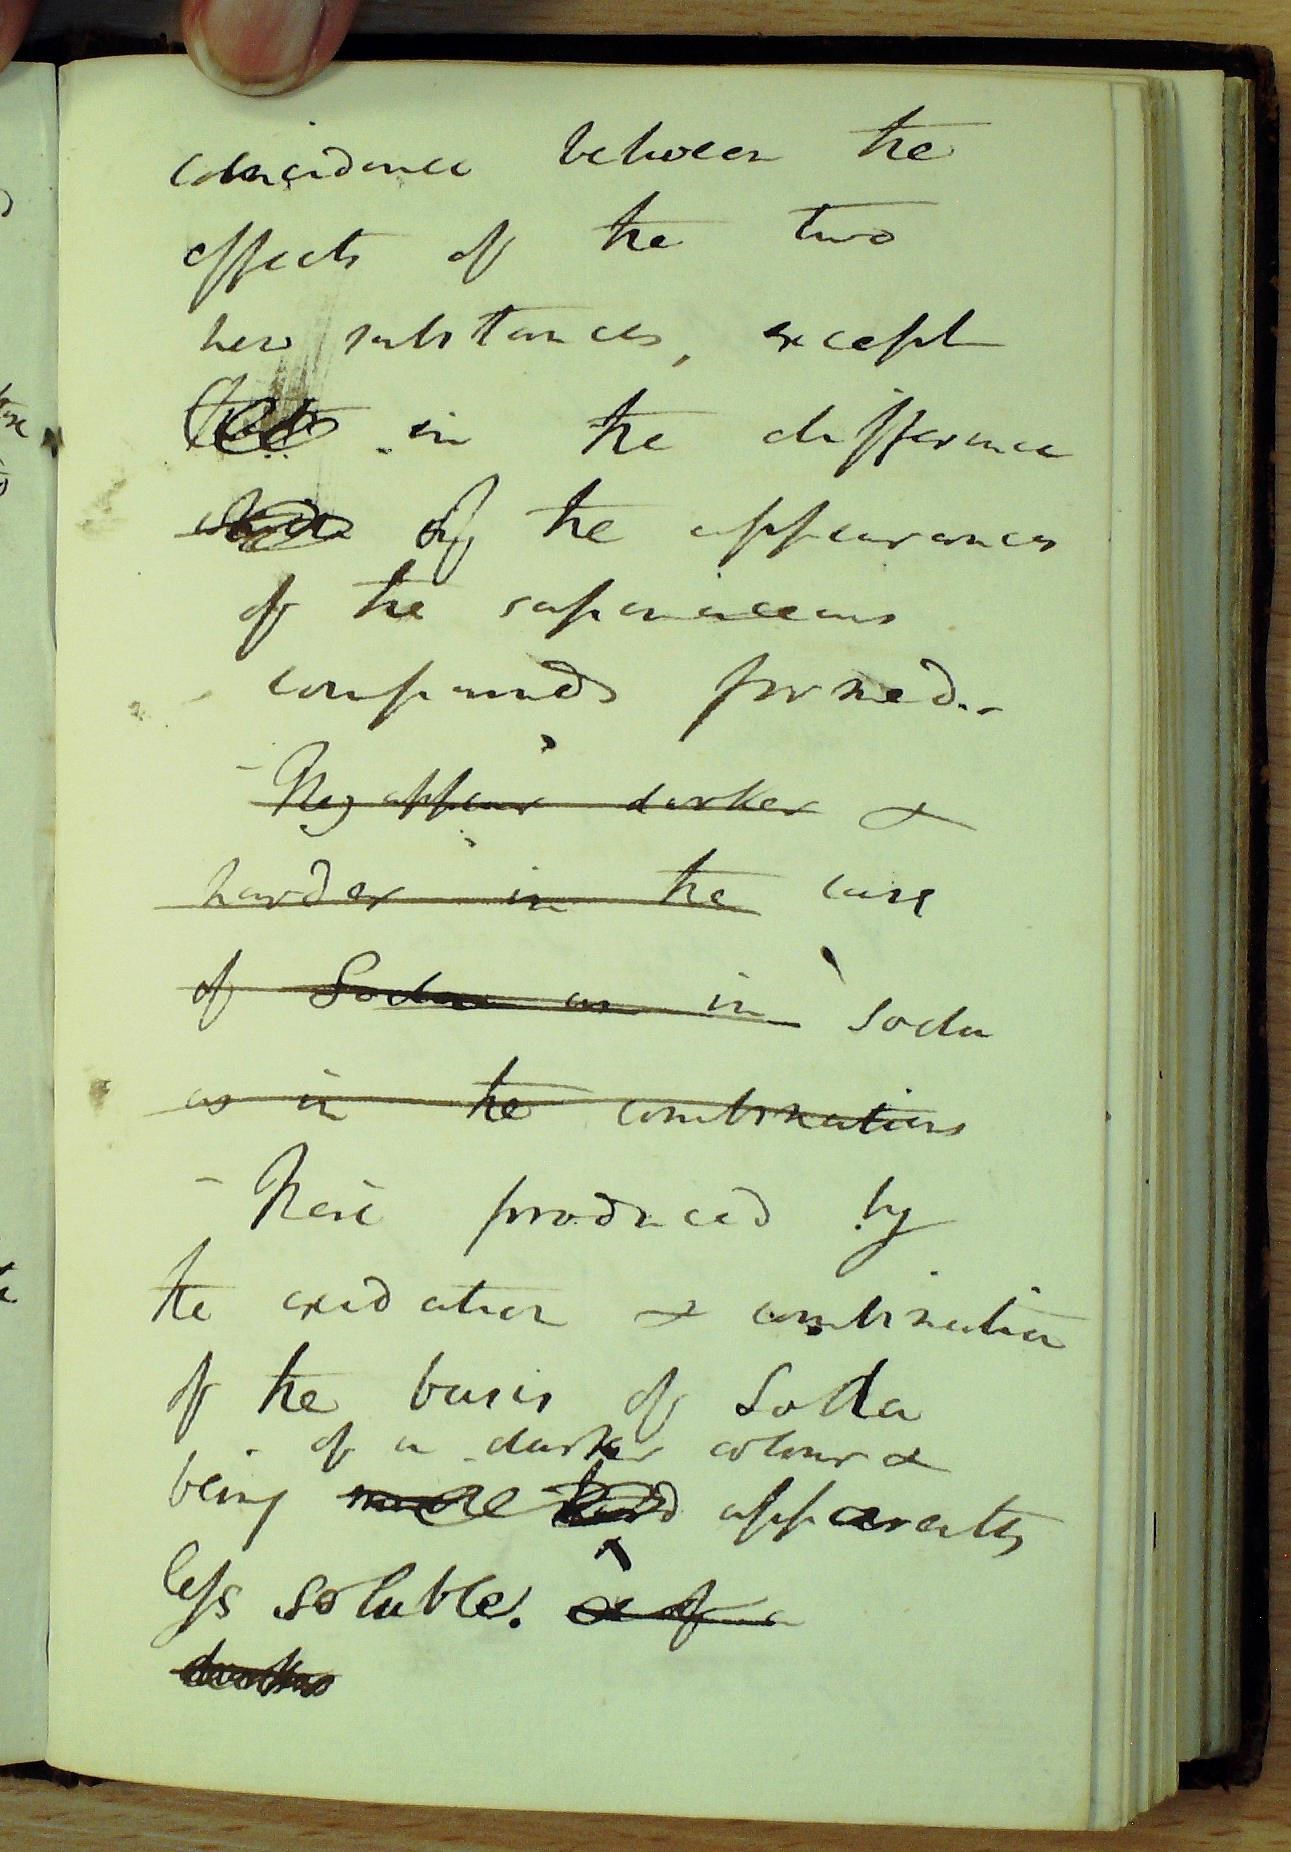 coincidence between the
effects of the two
new substances, except
in the difference
of the appearances
of the saponaceous
compounds formed.-
- They appear darker &
harder in the case
of Soda as in soda
as in the combinations
- That produced by
the oxidation & combination
of the basis of Soda
of a darker colour &
being more hard apparently
less soluble. & of a
darker